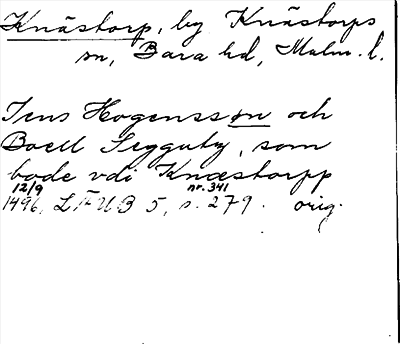 Knästorp, by Knästorps
sn, Bara hd, Malm. l.
Jens Hogenssøn och
Boell Segguby, som
bode vdi Knæstorpp
12/9 nr. 341
1496, LÄUB 5, s. 279. orig.